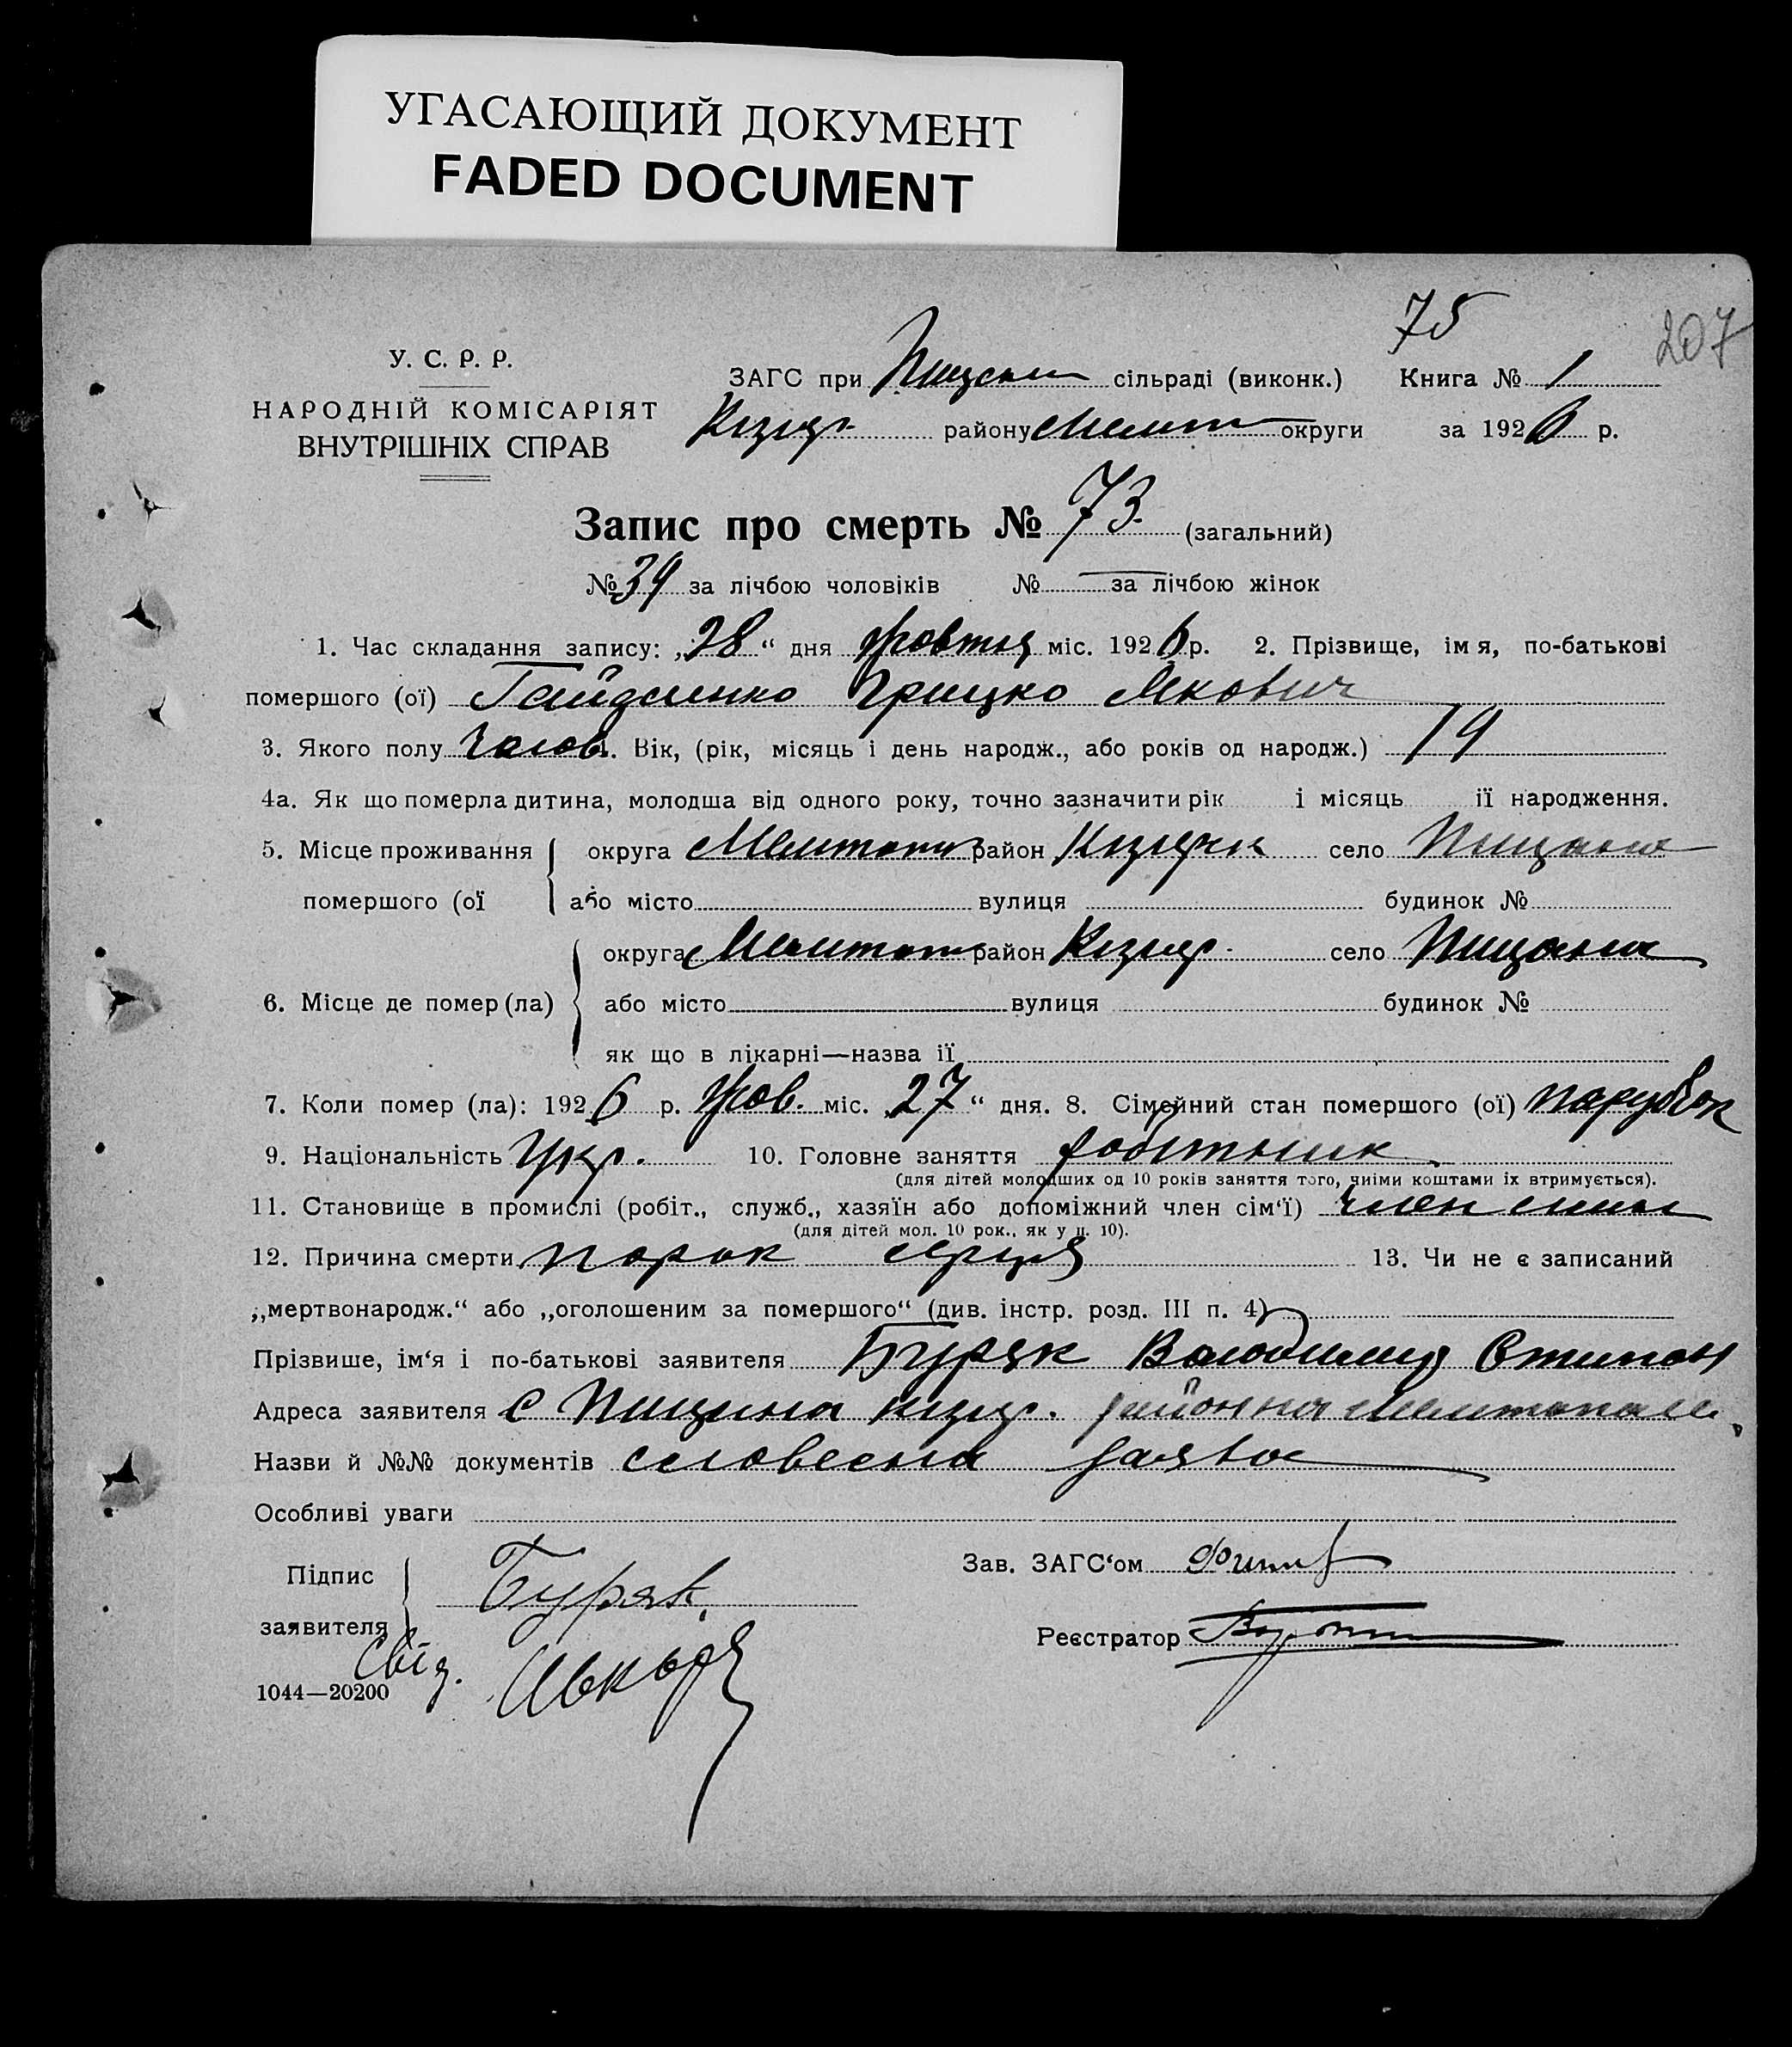 УГАСАЮЩИЙ ДОКУМЕНТ
FADED DOCUMENT
75
207
У. С. Р. Р.
НАРОДНІЙ КОМІСАРІЯТ
ВНУТРІШНІХ СПРАВ
ЗАГС при сільраді (виконк.) Книга № 1
району Мелит округи за 1926 р.
Запис про смерть № 73 (загальний)
№ 39 за лічбою чоловіків № — за лічбою жінок
1. Час складання запису: „28“ дня Жовтня міс. 1926 р. 2. Прізвище, ім я, по-батькові
помершого (ої) Грицко Якович
3. Якого полу Вік, (рік, місяць і день народж., або років од народж.) 19
4а. Як що померла дитина, молодша від одного року, точно зазначити рік і місяць її народження.
5. Місце проживання округа Мелитоп район село
помершого (ої або місто вулиця будинок №
округа Мелитоп район село
6. Місце де помер (ла) або місто вулиця будинок №
як що в лікарні—назва її
7. Коли помер (ла): 1926 р. Жов. міс. 27“ дня. 8. Сімейний стан помершого (ої) парубок
9. Національність Укр. 10. Головне заняття робітник
(для дітей молодших од 10 років заняття того, чиїми коштами їх втримується).
11. Становище в промислі (робіт., служб., хазяїн або допоміжний член сім‘ї) член
(для дітей мол. 10 рок., як у п. 10).
12. Причина смерти порок серця 13. Чи не є записаний
„мертвонародж.“ або „оголошеним за помершого“ (див. інстр. розд. III п. 4)
Прізвише, ім‘я і по-батькові заявителя Буряк Володимир Степан
Адреса заявителя с
Назви й №№ документів словесна заява
Особливі уваги
Підпис
заявителя Буряк.
Зав. ЗАГС‘ом
Реєстратор
Свід.
1044—20200